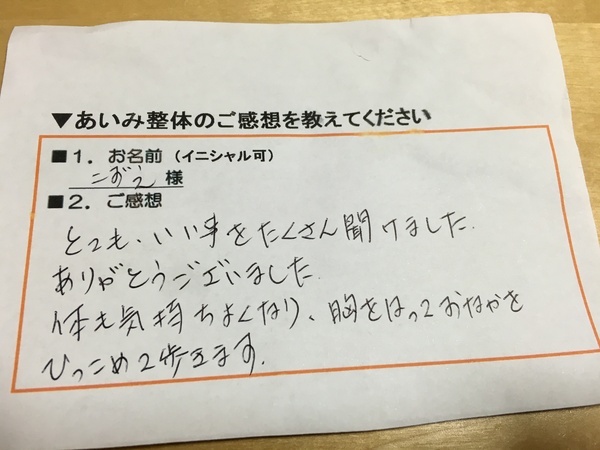 ▼あいみ整体のご感想を教えてください
■1．お名前（イニシャル可）
こずえ 様
■2．ご感想
とても、いい事をたくさん聞けました.
ありがとうございました.
体も気持ちよくなり、胸をはっておなかを
ひっこめて歩きます.